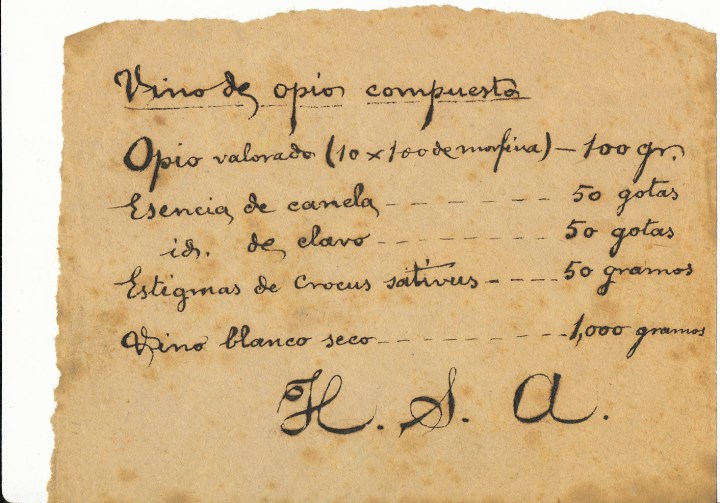 Vino de opio compuesto
Opio valorado (10 x 100 de morfina) - 100 gr.
Esencia de canela - - - - - - - 50 gotas
id. de clavo - - - - - - - 50 gotas
Estigmas de Crocus sativus - - - - 50 gramos
Vino blanco seco - - - - - - - - 1,000 gramos
H. S. A.